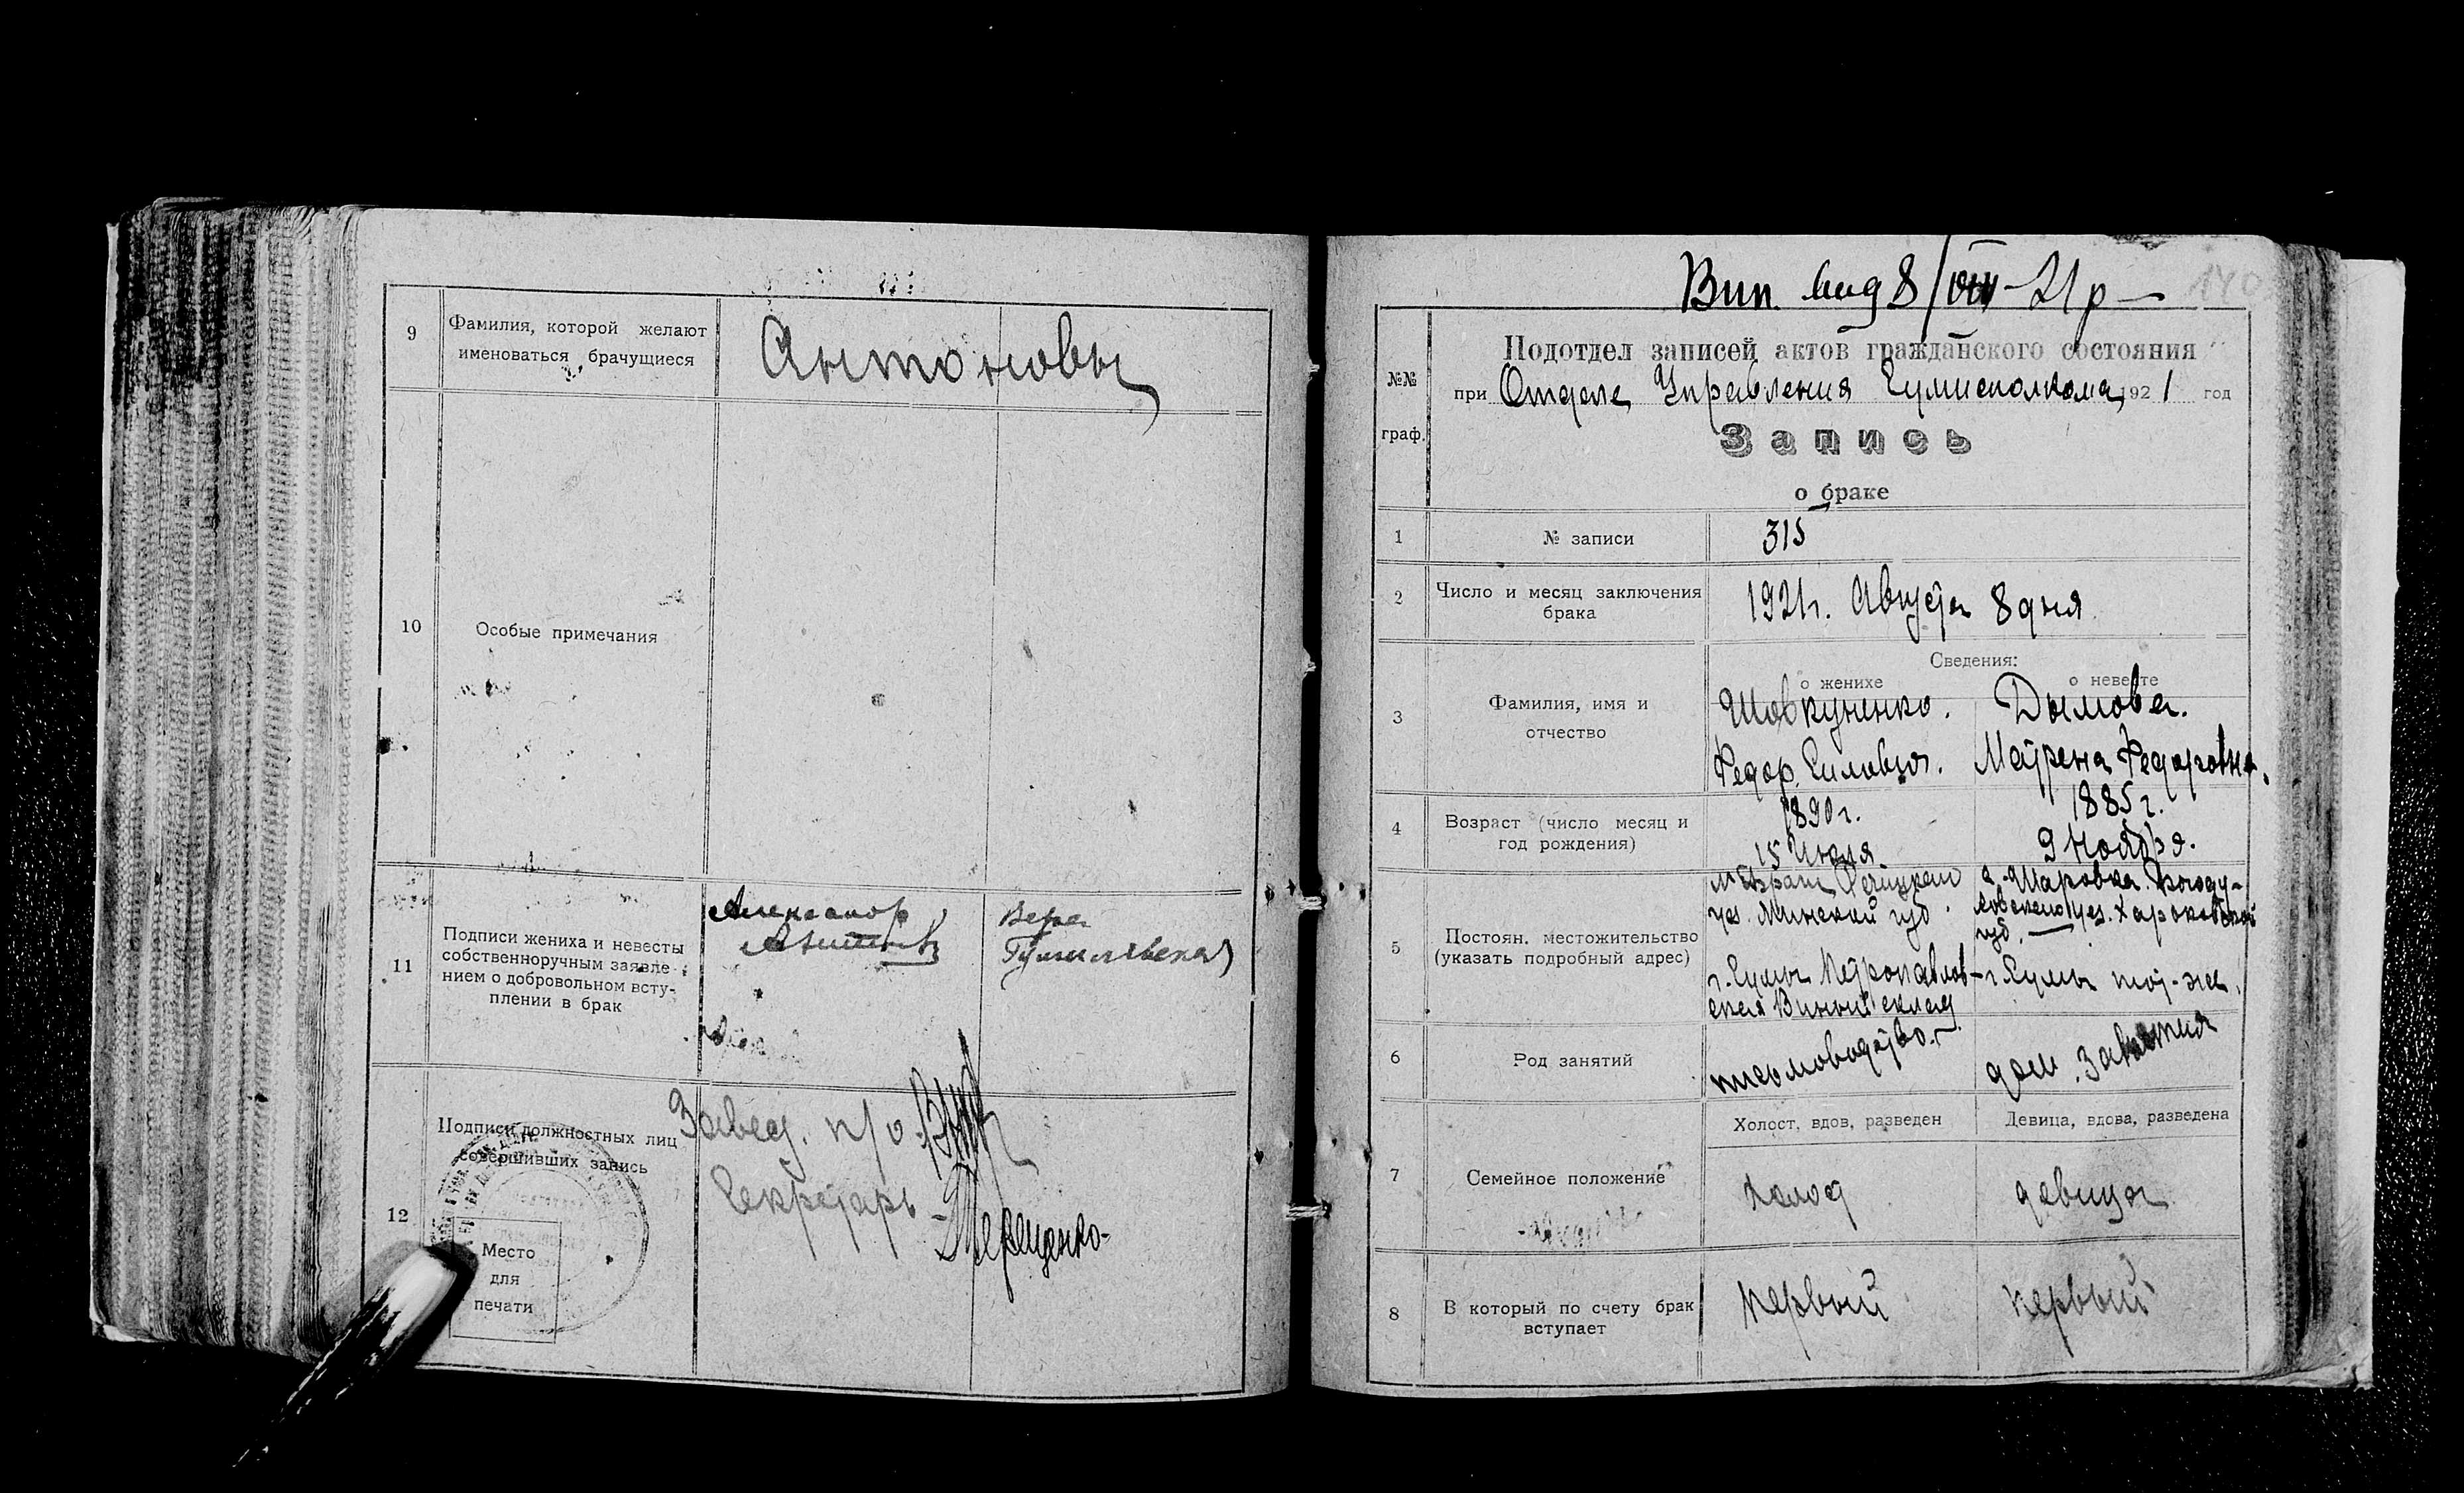 9
Фамилия, которой желают
именоваться брачущиеся
Антоновы
10
Особые примечания
11
Подписи жениха и невесты
собственноручным заявле-
нием о добровольном всту-
плении в брак
Александр
Антонов
Вера
12
Подписи должностных лиц
совершивших запись
Завед. п/о
Секретарь Терещенко
Место
для
печати
Вип. вид 8/VIII-21р
140
№№
граф.
Подотдел записей актов гражданского состояния
при Отделе Управления Сумисполкома 1921 год
Запись
о браке
1
№ записи
315
2
Число и месяц заключения
брака
1921г. Августа 8 дня
Сведения:
о женихе
о невесте
3
Фамилия, имя и
отчество
Шовкуненко.
Федор
Дымова.
Матрена Федоровна.
4
Возраст (число месяц и
год рождения)
1890г.
15 Июля.
1885г.
9 Ноября.
5
Постоян. местожительство
(указать подробный адрес)
Речицкого
уез. Минской губ.
г. Сумы Петропавлов-
ская Винный склад
с. Шаровка Богоду-
ховского уез. Харьковской
губ.
г. Сумы той-же.
6
Род занятий
письмоводство.
дом. занятия
7
Семейное положение
Холост, вдов, разведен
Девица, вдова, разведена
холост
девица
8
В который по счету брак
вступает
первый
первый